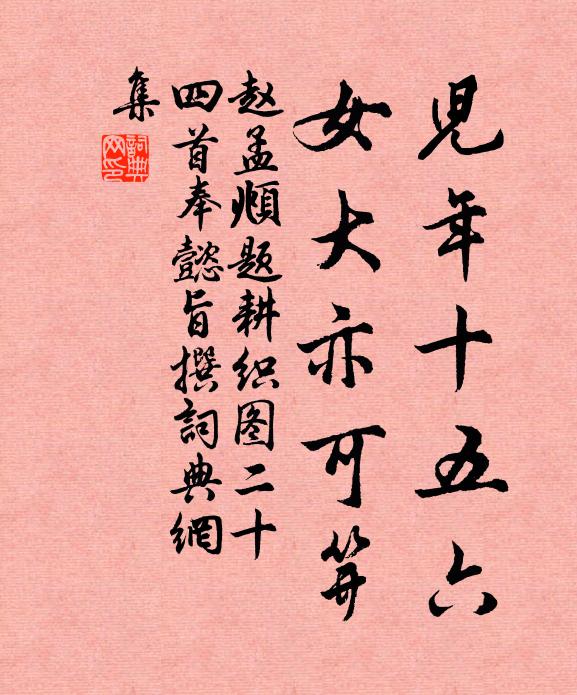 児年十五六
女大亦可笄
赵孟頫题耕织图二十
四首奉懿旨撰詞典網
集
詞典网印